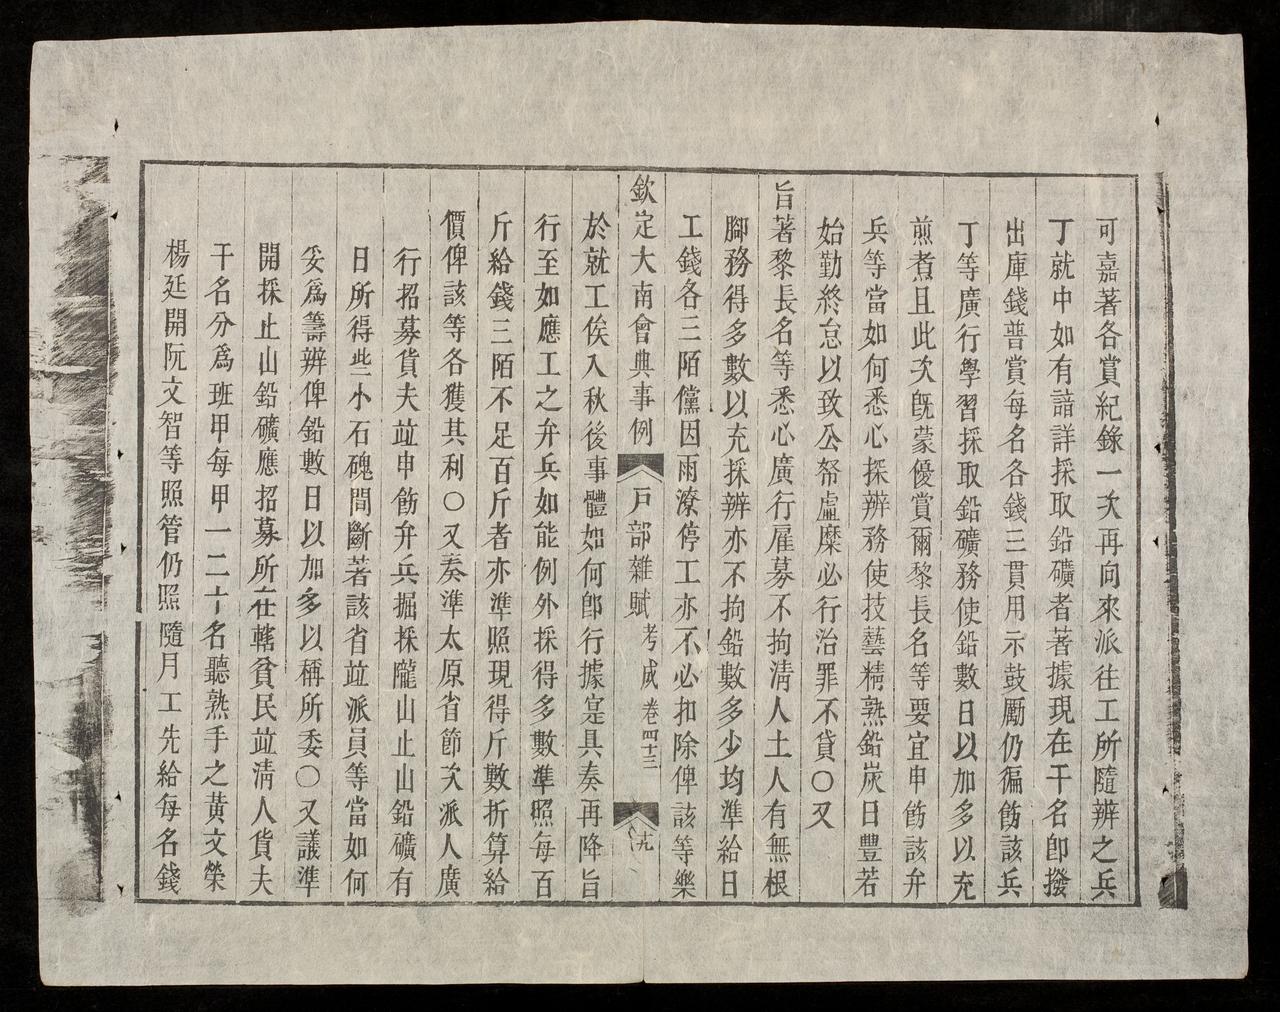 可嘉著各賞紀錄一次再向來派往工所隨辨之兵
丁就中如有諳詳採取鉛礦者著據現在干名卽撥
出庫錢普賞每名各錢三貫用示鼓勵仍徧飭該兵
丁等廣行學習採取鉛礦務使鉛數日以加多以充
煎煮且此次旣蒙優賞爾黎長名等要宜申飭該弁
兵等當如何悉心採辨務使技藝精熟鉛炭日豐若
始勤終怠以致公帑虛糜必行治罪不貸〇又
旨著黎長名等悉心廣行雇募不拘淸人土人有無根
腳務得多數以充採辨亦不拘鉛數多少均準給日
工錢各三陌儻因雨潦停工亦不必扣除俾該等樂
欽定大南會典事例 戸部雜賦 考成 卷四十三 十九
於就工俟入秋後事體如何卽行據寔具奏再降旨
行至如應工之弁兵如能例外採得多數準照每百
斤給錢三陌不足百斤者亦準照現得斤數折算給
價俾該等各獲其利〇又奏準太原省節次派人廣
行招募貨夫竝申飭弁兵掘採隴山止山鉛礦有
日所得些小石磈間斷著該省竝派員等當如何
妥爲籌辨俾鉛數日以加多以稱所委〇又議準
開採止山鉛礦應招募所在轄貧民竝淸人貨夫
干名分爲班甲每甲一二十名聽熟手之黃文榮
楊廷開阮文智等照管仍照隨月工先給每名錢